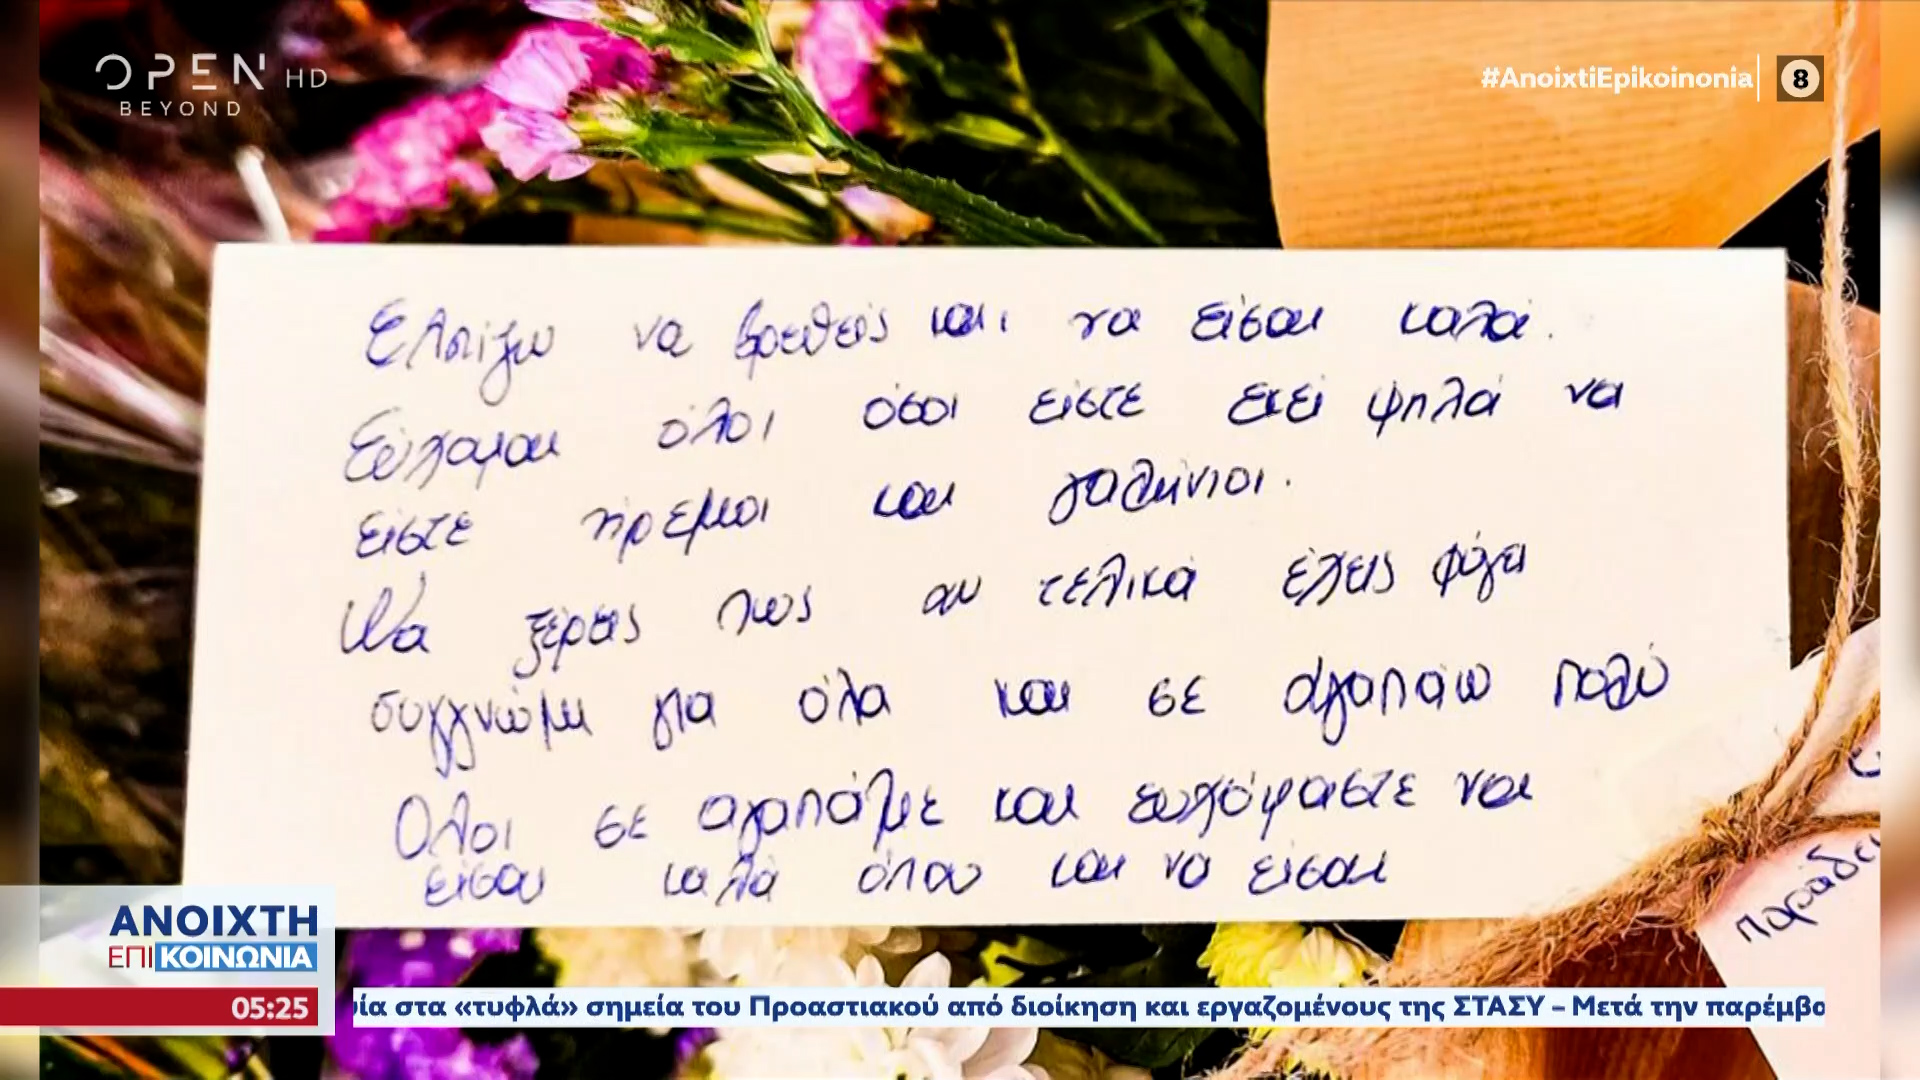 OPEN HD
BEYOND
#AnoixtiEpikoinonia
8
Ελπίζω να βρεθείς και να είσαι καλά.
Εύχομαι όλοι όσοι είστε εκεί ψηλά να
είστε ήρεμοι και γαλήνιοι.
Να ξέρεις πως αν τελικά έχεις φύγει
συγγνώμη για όλα και σε αγαπάω πολύ
Όλοι σε αγαπάμε και ευχόμαστε να
είσαι καλά όπου και να είσαι
Παράδει
ΑΝΟΙΧΤΗ
ΕΠΙΚΟΙΝΩΝΙΑ
05:25
ία στα «τυφλά» σημεία του Προαστιακού από διοίκηση και εργαζομένους της ΣΤΑΣΥ – Μετά την παρέμβα